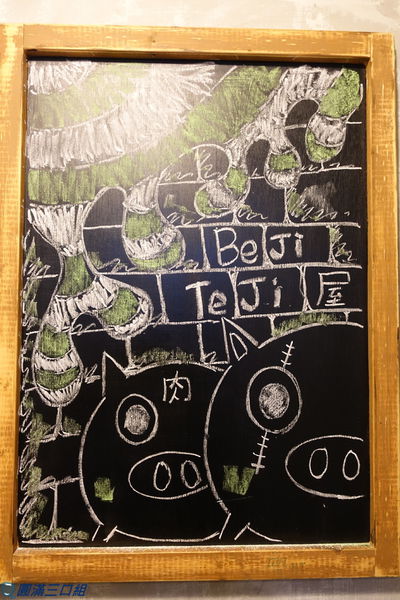 BeJi
TeJi屋
肉
圓滿三口組